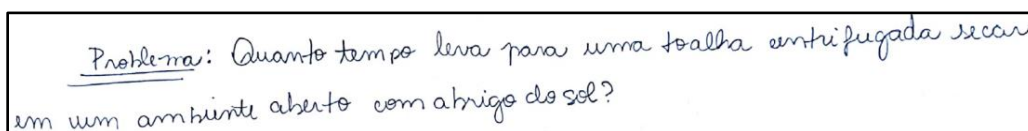 Problema: Quanto tempo leva para uma toalha centrifugada secar
em um ambiente aberto com abrigo do sol?